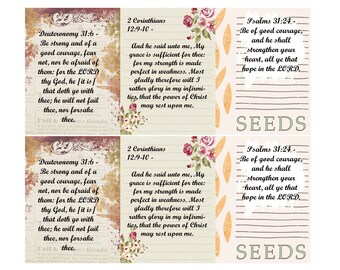 Deuteronomy 31:6 -
Be strong and of a
good courage, fear
not, nor be afraid of
them: for the LORD
thy God, he [it is]
that doth go with
thee; he will not fail
thee, nor forsake
thee.
2 Corinthians
12:9-10 -
And he said unto me, My
grace is sufficient for thee:
for my strength is made
perfect in weakness. Most
gladly therefore will I
rather glory in my infirmi-
ties, that the power of Christ
may rest upon me.
Psalms 31:24 -
Be of good courage,
and he shall
strengthen your
heart, all ye that
hope in the LORD.
SEEDS
Deuteronomy 31:6 -
Be strong and of a
good courage, fear
not, nor be afraid of
them: for the LORD
thy God, he [it is]
that doth go with
thee; he will not fail
thee, nor forsake
thee.
2 Corinthians
12:9-10 -
And he said unto me, My
grace is sufficient for thee:
for my strength is made
perfect in weakness. Most
gladly therefore will I
rather glory in my infirmi-
ties, that the power of Christ
may rest upon me.
Psalms 31:24 -
Be of good courage,
and he shall
strengthen your
heart, all ye that
hope in the LORD.
SEEDS